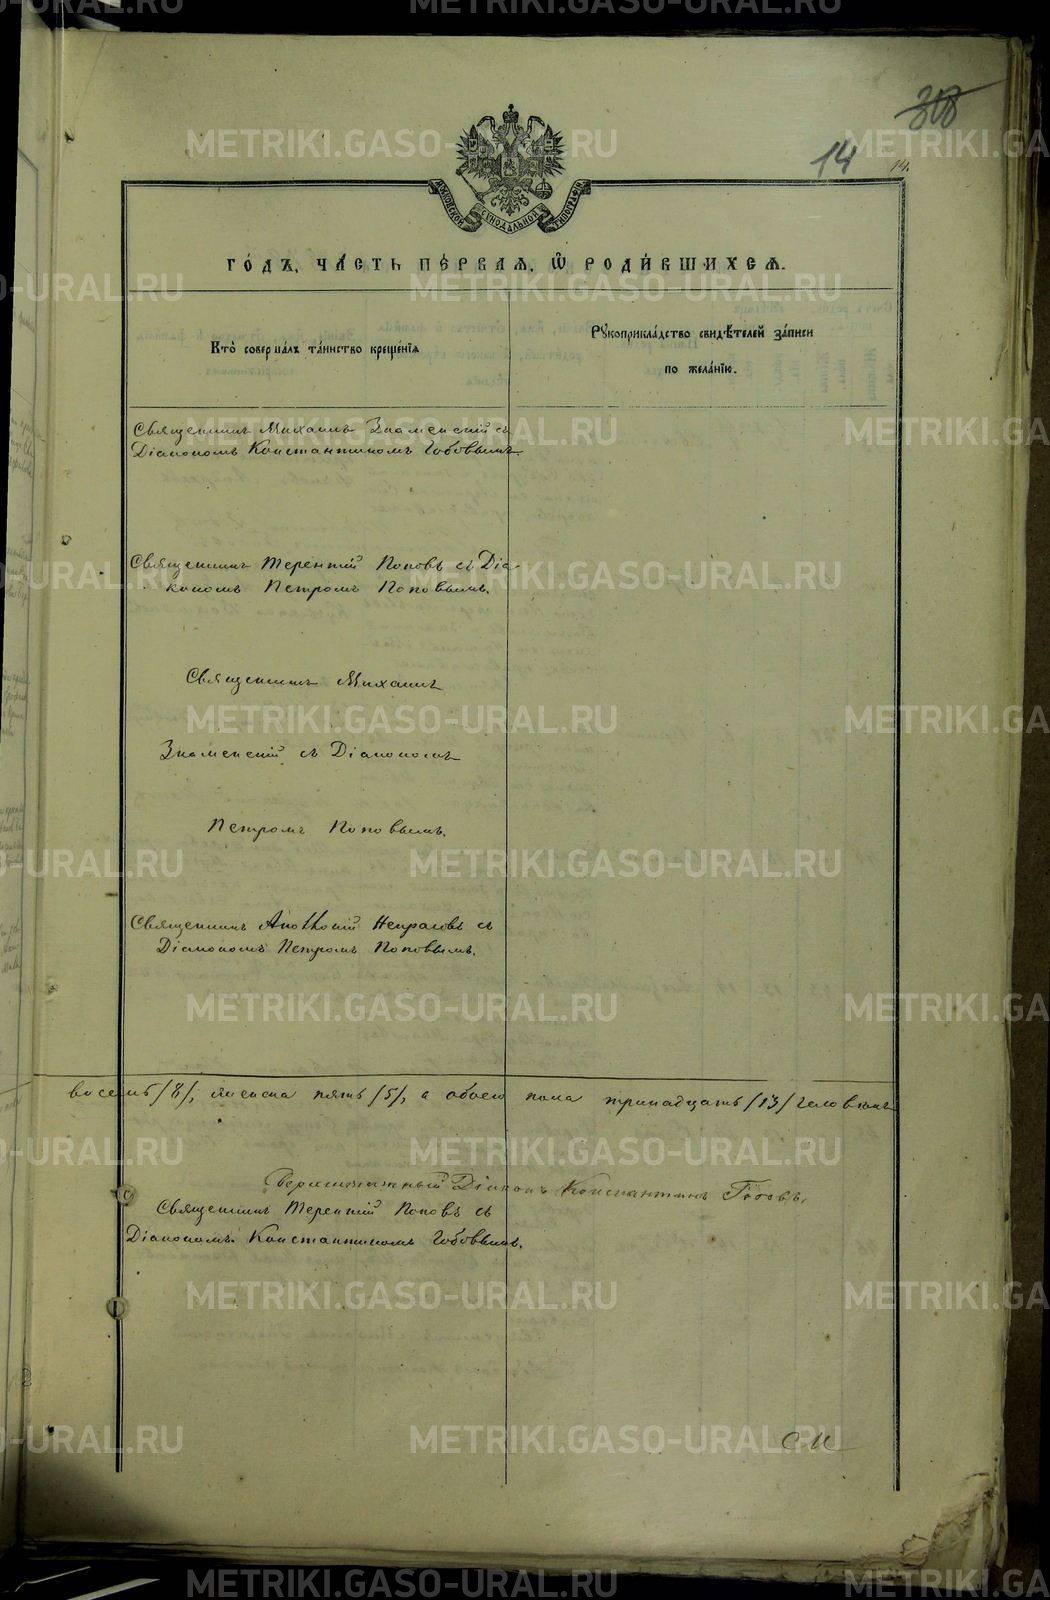 318
14
14.
МОСКОВСКОЙ СѴНОДАЛЬНОЙ ТИПОГРАФІИ
ГО́ДЪ, ЧА́СТЬ ПЕ́РВАѦ, Ѡ҆ РОДИ́ВШИХСѦ.
Кто̀ соверша́лъ та́инство креще́нїѧ
Рꙋкоприкла́дство свидѣ́телей за́писи
по жела́нїю.
Священникъ Михаилъ Знаменскій съ
Діакономъ Константиномъ Гобовымъ
Священникъ Терентій Поповъ съ Діа-
кономъ Петромъ Поповымъ.
Священникъ Михаилъ
Знаменскій съ Діакономъ
Петромъ Поповымъ.
Священникъ Анѳоній Некрасовъ съ
Діакономъ Петромъ Поповымъ.
восемь /8/, женска пять /5/, а обоего пола тринадцать /13/ человѣкъ
Сверхштатный Діаконъ Константинъ
Священникъ Терентій Поповъ съ
Діакономъ Константиномъ Гобовымъ.
METRIKI.GASO-URAL.RU